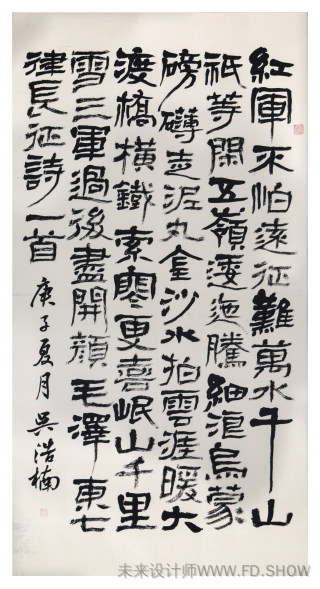 紅軍不怕遠征難萬水千山
祇等閑五嶺逶迤騰細浪烏蒙
磅礴走泥丸金沙水拍雲涯暖大
渡橋橫鐵索寒更喜岷山千里
雪三軍過後盡開顏毛澤東七
律長征詩一首
庚子夏月吳浩楠
未来设计师WWW.FD.SHOW